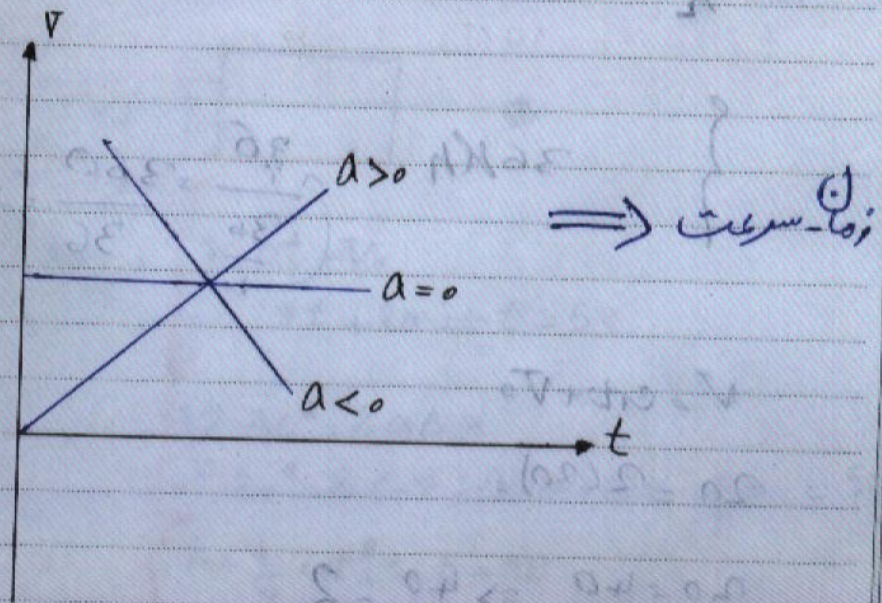 V
a>0
⟹ سرعت-زمان
a=0
a<0
t